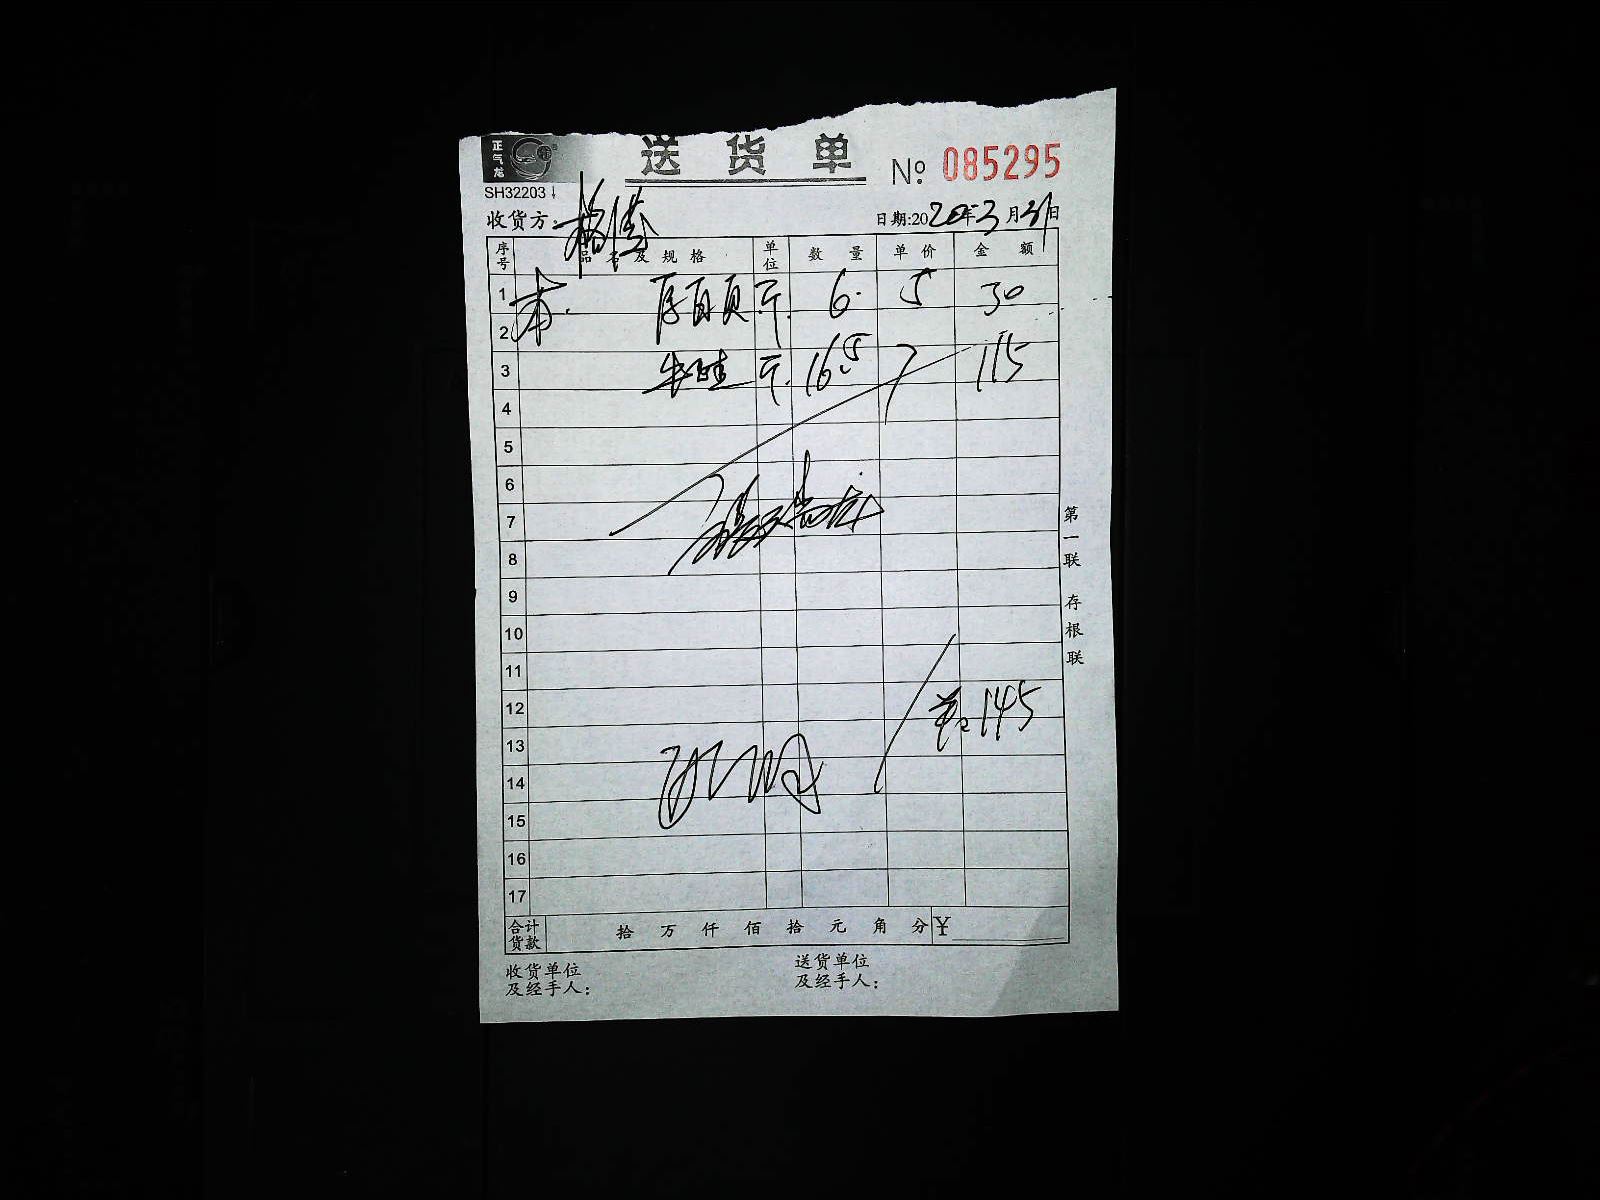 正气龙
送货单 № 085295
SH32203
收货方:
日期:2020年3月31日
序号 品名及规格 单位 数量 单价 金额
1 厚百页 斤 6 5 30
2
3 牛 斤 16.5 7 115
4
5
6
7
8
9
10
11
12 145
13
14
15
16
17
合计货款 拾 万 仟 佰 拾 元 角 分 ¥
收货单位及经手人:
送货单位及经手人:
第一联 存根联